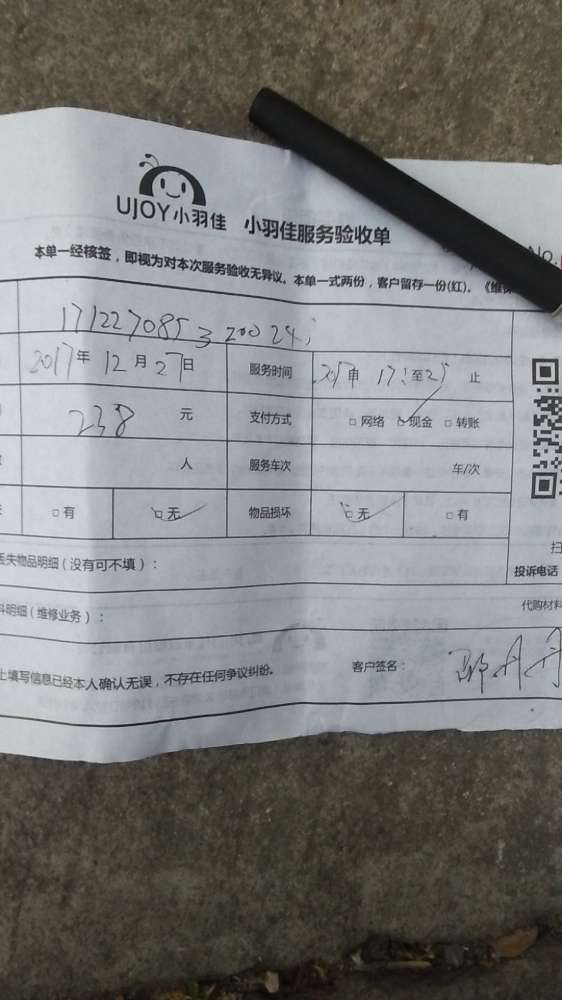 UJOY小羽佳 小羽佳服务验收单
No.
本单一经核签，即视为对本次服务验收无异议。本单一式两份，客户留存一份(红)。《维
171227085320024
2017年12月27日 服务时间 至 止
238 元 支付方式 □网络 □现金 □转账
人 服务车次 车/次
□有 □无 物品损坏 □无 □有
丢失物品明细（没有可不填）：
扫
投诉电话
料明细（维修业务）：
代购材料
上填写信息已经本人确认无误，不存在任何争议纠纷。 客户签名：